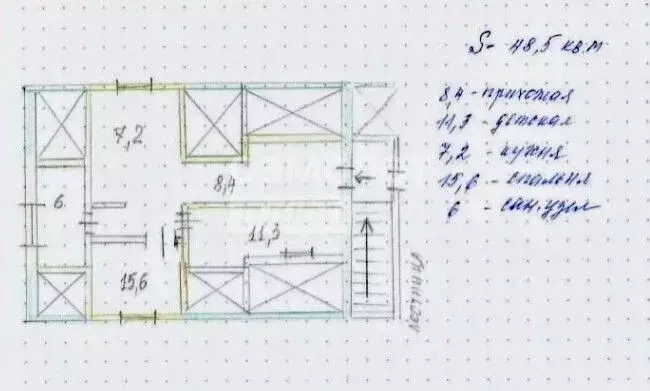 S- 48,5 кв.м
8,4 - прихожая
11,3 - детская
7,2 - кухня
15,6 - спальня
6 - сан.узел
7,2
6
8,4
11,3
15,6